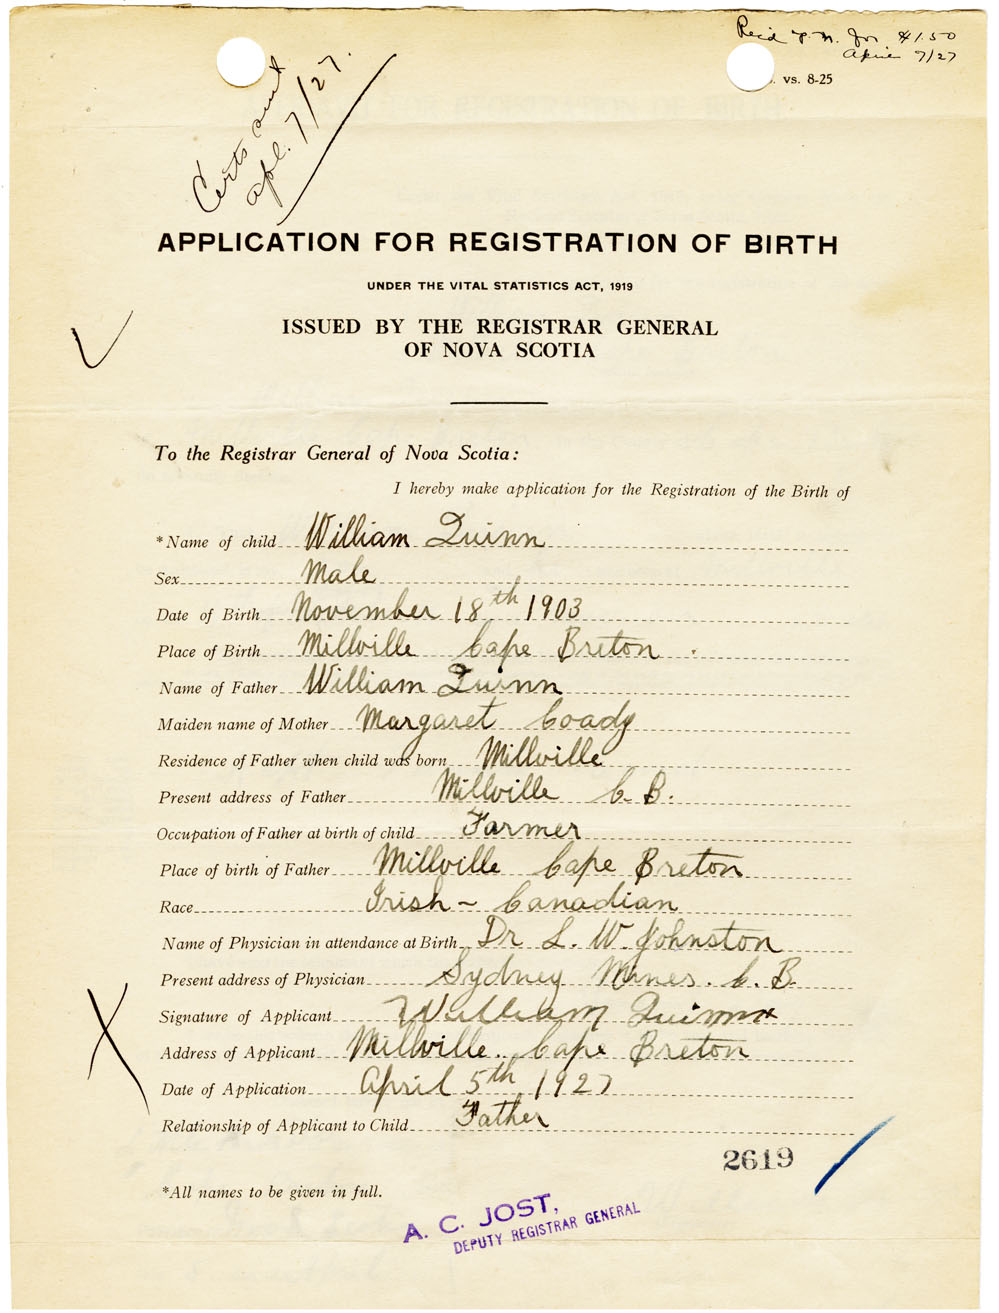 Rec'd P. N. for $1.50
April 7/27
. vs. 8-25
Certs sent
apl. 7/27.
APPLICATION FOR REGISTRATION OF BIRTH
UNDER THE VITAL STATISTICS ACT, 1919
ISSUED BY THE REGISTRAR GENERAL
OF NOVA SCOTIA
To the Registrar General of Nova Scotia:
I hereby make application for the Registration of the Birth of
*Name of child William Quinn
Sex Male
Date of Birth November 18th 1903
Place of Birth Millville Cape Breton .
Name of Father William Quinn
Maiden name of Mother Margaret Coady
Residence of Father when child was born Millville
Present address of Father Millville C. B.
Occupation of Father at birth of child Farmer
Place of birth of Father Millville Cape Breton
Race Irish - Canadian
Name of Physician in attendance at Birth Dr L. W. Johnston
Present address of Physician Sydney Mines. C. B
Signature of Applicant William Quinn
Address of Applicant Millville. Cape Breton
Date of Application April 5th 1927
Relationship of Applicant to Child Father
2619
*All names to be given in full.
A. C. JOST,
DEPUTY REGISTRAR GENERAL